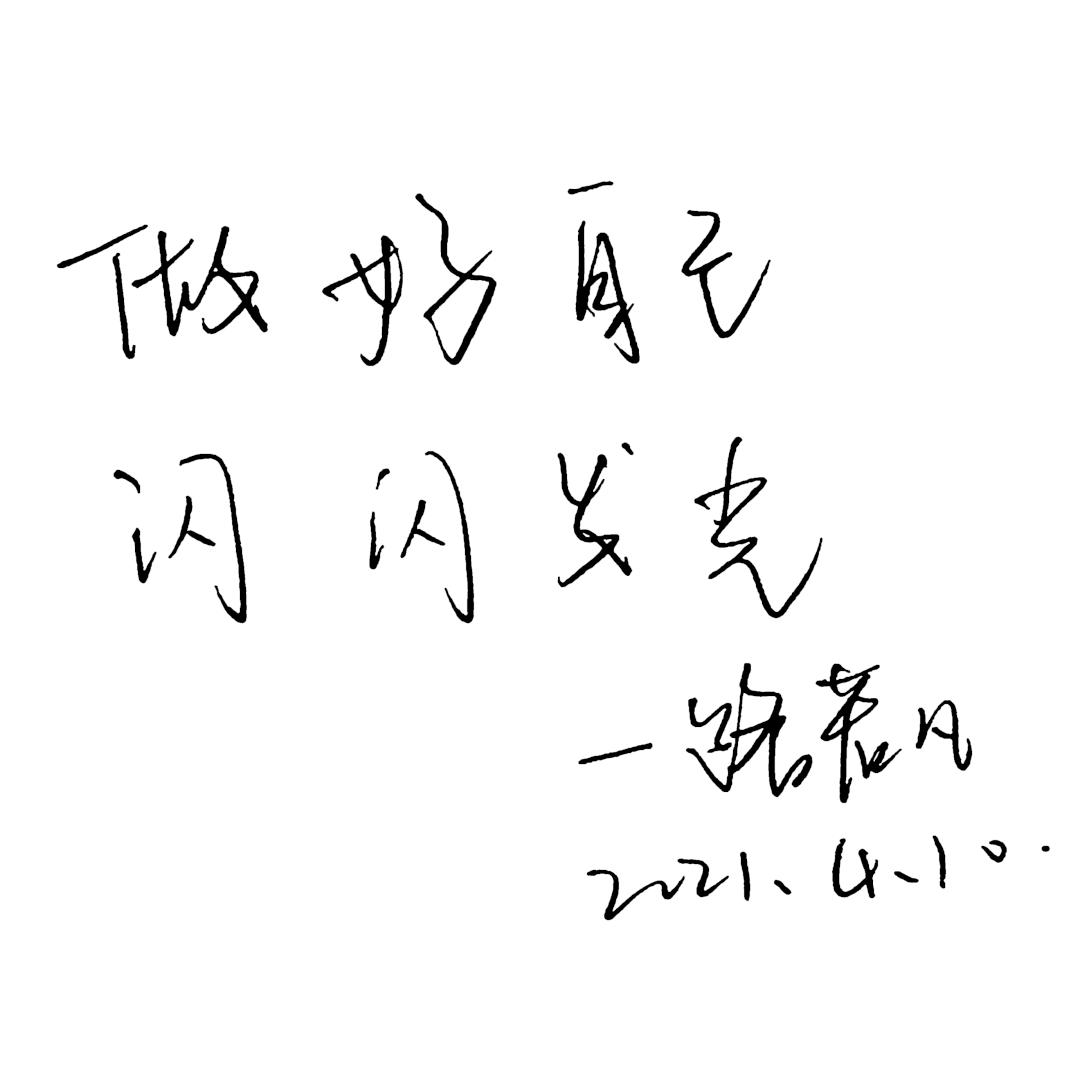 做好自己
闪闪发光
一路若凡
2021.4.10.